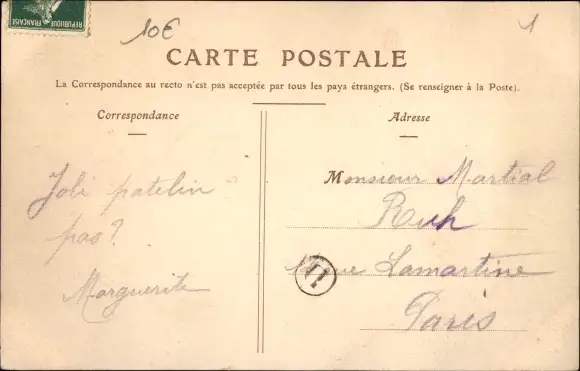 RÉPUBLIQUE FRANÇAISE
10€
1
CARTE POSTALE
La Correspondance au recto n'est pas acceptée par tous les pays étrangers. (Se renseigner à la Poste).
Correspondance
Adresse
Joli patelin
pas?
Marguerite
Monsieur Martial
rue Lamartine
Paris